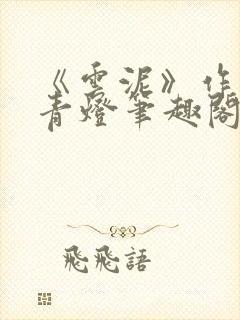 《雲泥》作
青燈筆趣閣
飛飛語